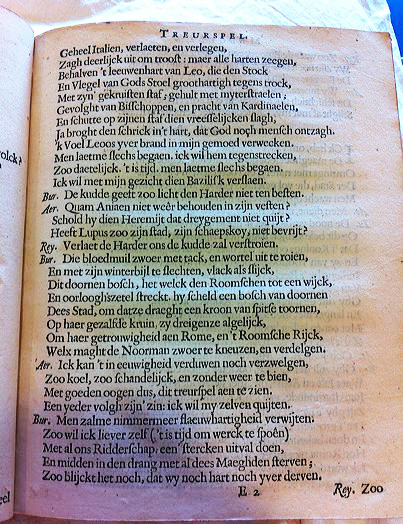 TREURSPEL.
Geheel Italien, verlaeten, en verlegen,
Zagh deerlijck uit om troost: maer alle harten zeegen,
Behalven 't leeuwenhart van Leo, die den Stock
En Vlegel van Gods Stoel groothartigh tegens trock,
Met zyn' gekruisten staf, gehult met myterstaelen;
Gevolght van Bisschoppen, en pracht van Kardinaelen,
En schutte op zijnen staf dien vreesselijcken slagh;
Ja broght den schrick in't hart, dat God noch mensch ontzagh.
'k Voel Leoos yver brand in mijn gemoed verwecken.
Men laetme slechs begaen. ick wil hem tegenstrecken,
Zoo daetelijck. 't is tijd. men laetme slechs begaen.
Ick wil met mijn gezicht dien Bazilisk verslaen.
Bur. De kudde geeft zoo licht den Harder niet ten besten.
Aer. Quam Aniaen niet weêr behouden in zijn vesten?
Schold hy dien Heremijt dat dreygement niet quijt?
Heeft Lupus zoo zijn stad, zijn schaepskoy, niet bevrijt?
Rey. Verlaet de Harder ons de kudde zal verstroien.
Bur. Die bloedmuil zwoer met tack, en wortel uit te roien,
En met zijn winterbijl te slechten, vlack als slijck,
Dit doornen bosch, het welck den Roomschen tot een wijck,
En oorlooghszetel streckt. hy scheld een bosch van doornen
Dees Stad, om datze draeght een kroon van spitse toornen,
Op haer gezalfde kruin, zy dreigenze algelijck,
Om haer getrouwigheid aen Rome, en 't Roomsche Rijck,
Welx maght de Noorman zwoer te kneuzen, en verdelgen.
Aer. Ick kan 't in eeuwigheid verduwen noch verzwelgen,
Zoo koel, zoo schandelijck, en zonder weer te bien,
Met goeden oogen dus, dit treurspel aen te zien.
Een yeder volgh zijn' zin: ick wil my zelven quijten.
Bur. Men zalme nimmermeer flaeuwhartigheid verwijten.
Zoo wil ick liever zelf ('t is tijd om werck te spoên)
Met al ons Ridderschap een' stercken uitval doen,
En midden in den drang met al dees Maeghden sterven;
Zoo blijckt het noch, dat wy noch hart noch yver derven.
E 2
Rey. Zoo